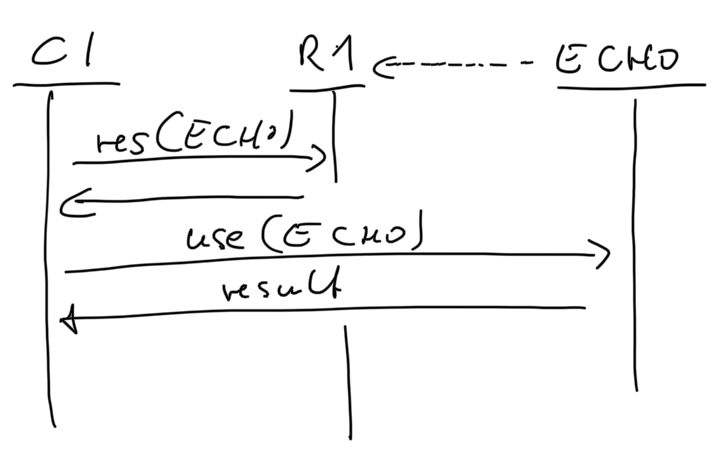 C1 R1 ECHO
res(ECHO)
use(ECHO)
result